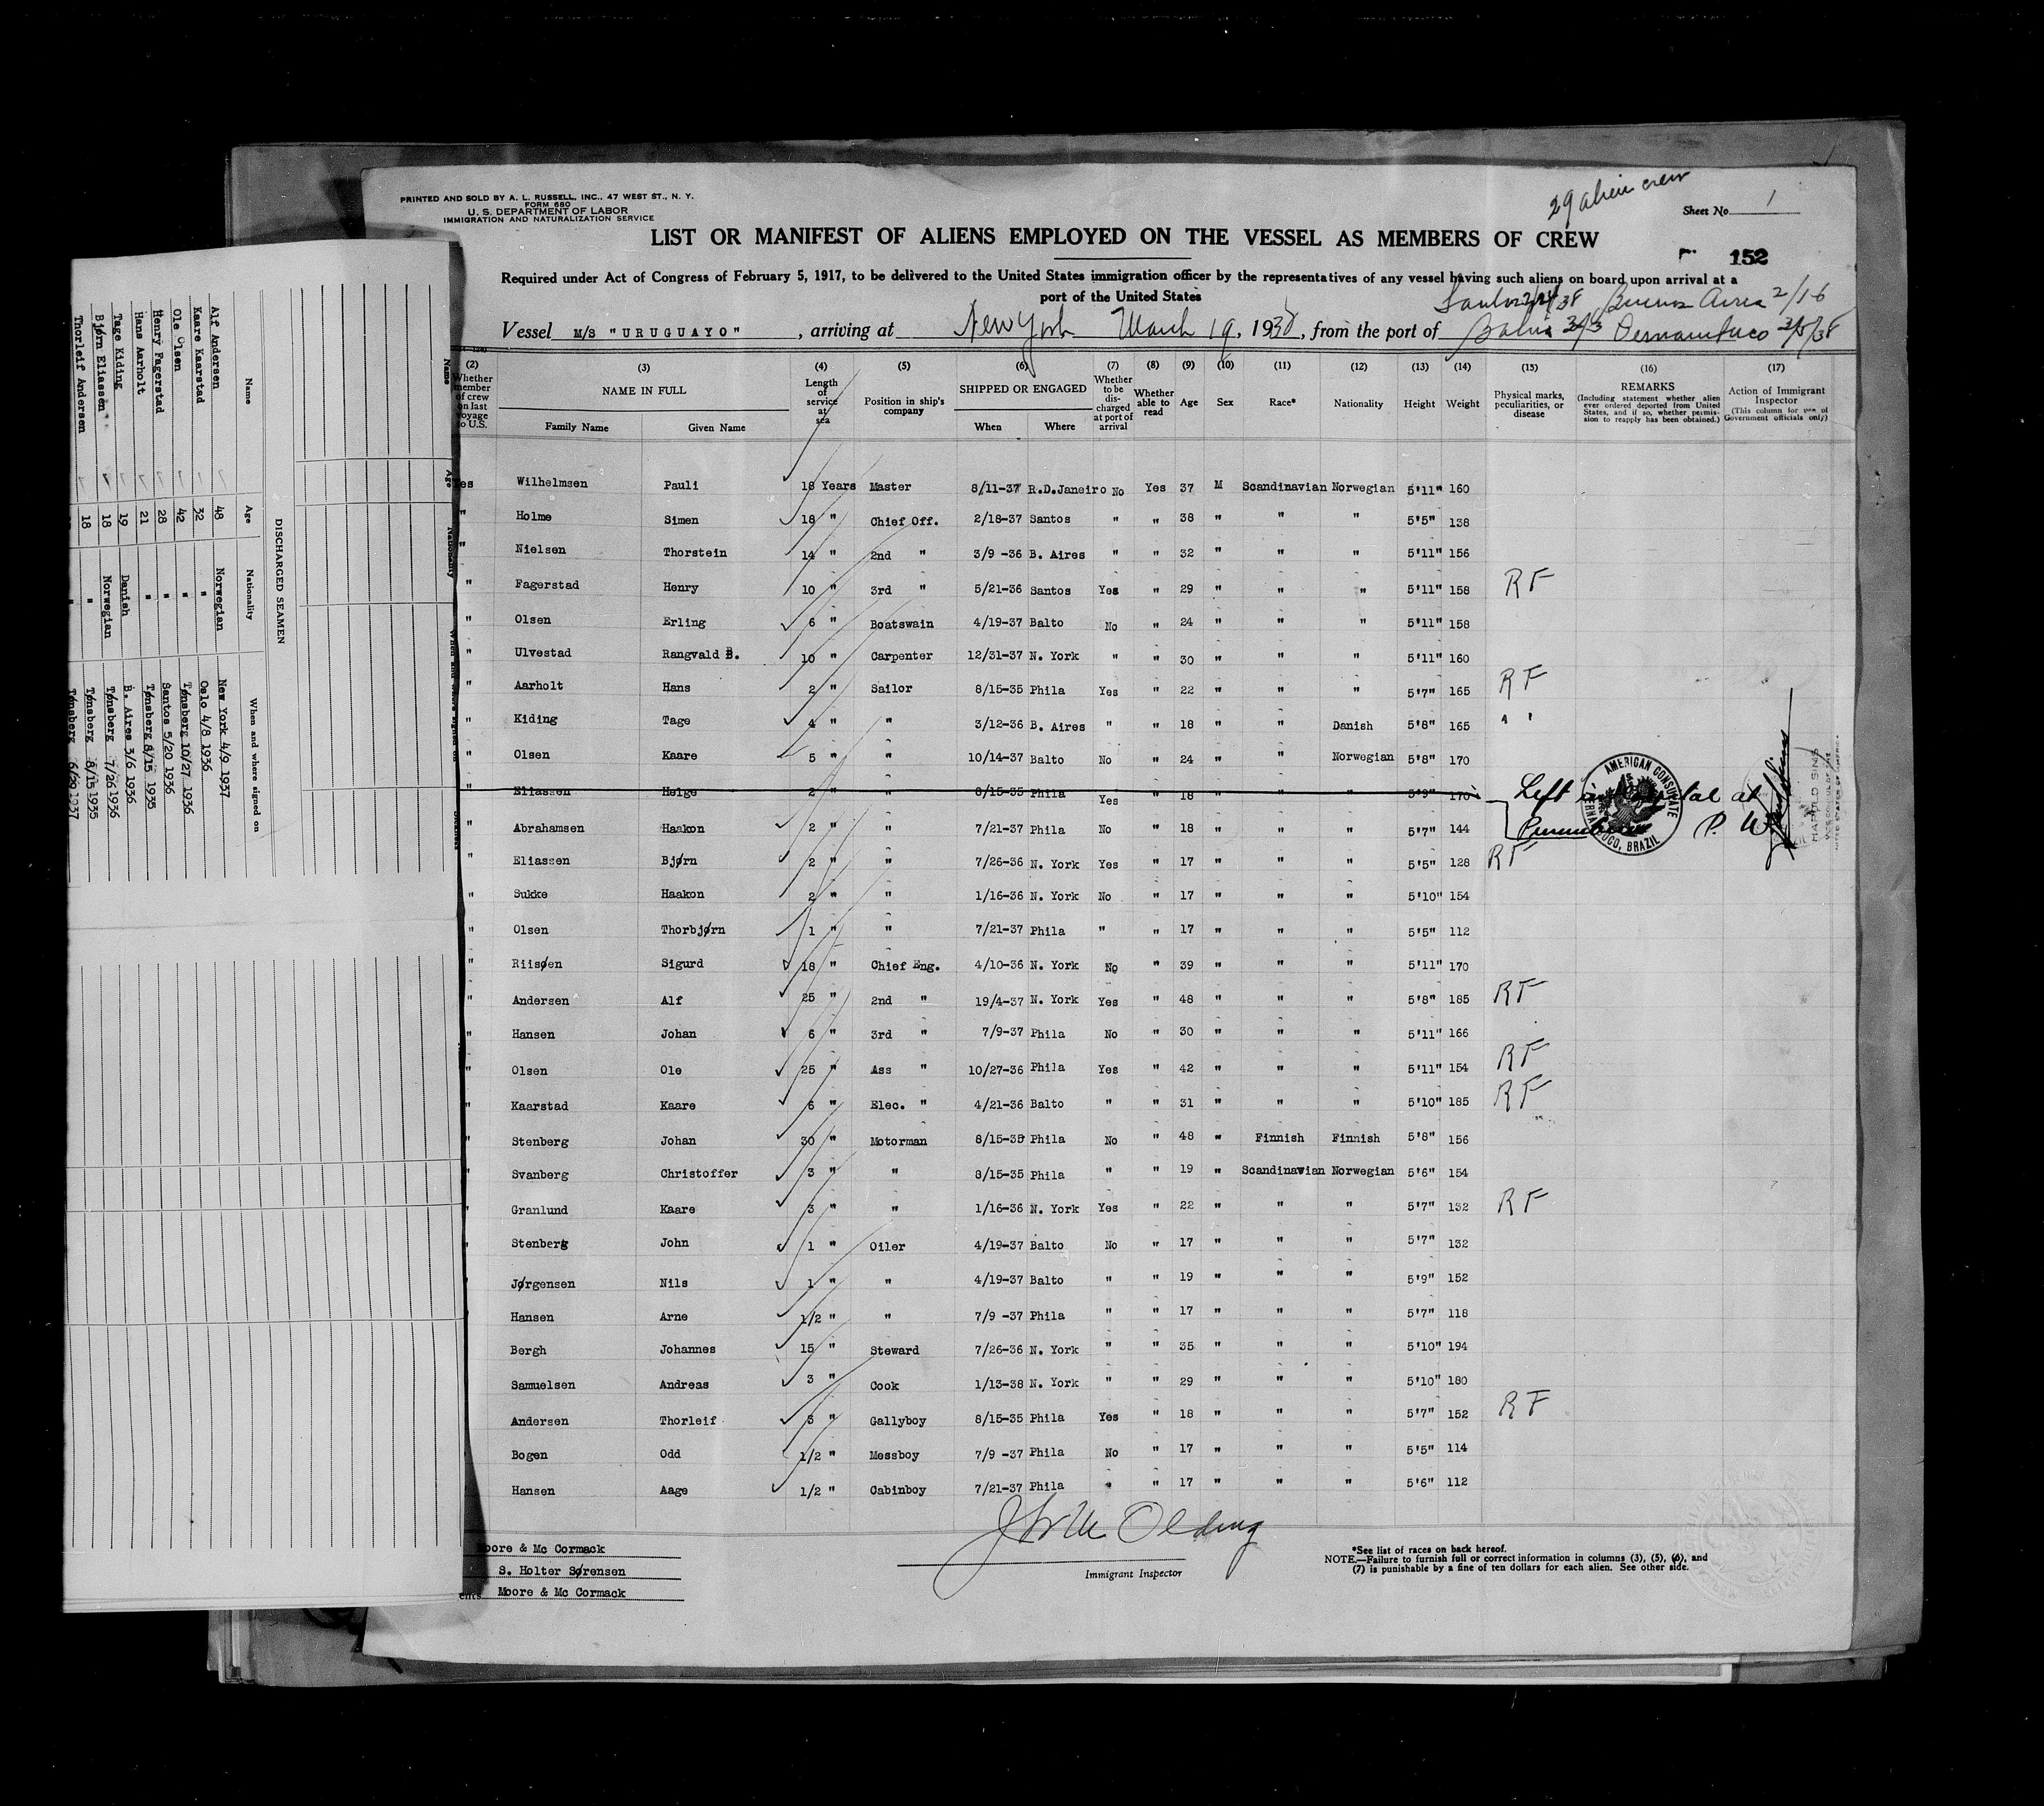 PRINTED AND SOLD BY A. L. RUSSELL, INC., 47 WEST ST., N. Y.
FORM 680
U. S. DEPARTMENT OF LABOR
IMMIGRATION AND NATURALIZATION SERVICE
29 alien crew
Sheet No. 1
LIST OR MANIFEST OF ALIENS EMPLOYED ON THE VESSEL AS MEMBERS OF CREW
152
Required under Act of Congress of February 5, 1917, to be delivered to the United States immigration officer by the representatives of any vessel having such aliens on board upon arrival at a
port of the United States
Buenos Aires 2/16
Vessel M/S "URUGUAYO", arriving at New York March 19, 1938, from the port of Bahia 3/3 Pernambuco 3/5/38
(2) (3) (4) (5) (6) (7) (8) (9) (10) (11) (12) (13) (14) (15) (16) (17)
Whether member of crew on last voyage to U.S. NAME IN FULL Family Name Given Name Length of service at sea Position in ship's company SHIPPED OR ENGAGED When Where Whether to be discharged at port of arrival Whether able to read Age Sex Race* Nationality Height Weight Physical marks, peculiarities, or disease REMARKS (Including statement whether alien ever ordered deported from United States, and if so, whether permission to reapply has been obtained.) Action of Immigrant Inspector (This column for use of Government officials only)
Yes Wilhelmsen Pauli 18 Years Master 8/11-37 R.D.Janeiro No Yes 37 M Scandinavian Norwegian 5'11" 160
" Holme Simen 18 " Chief Off. 2/18-37 Santos " " 38 " " " 5'5" 138
" Nielsen Thorstein 14 " 2nd " 3/9 -36 B. Aires " " 32 " " " 5'11" 156
" Fagerstad Henry 10 " 3rd " 5/21-36 Santos Yes " 29 " " " 5'11" 158 RF
" Olsen Erling 6 " Boatswain 4/19-37 Balto No " 24 " " " 5'11" 158
" Ulvestad Rangvald B. 10 " Carpenter 12/31-37 N. York " " 30 " " " 5'11" 160
" Aarholt Hans 2 " Sailor 8/15-35 Phila Yes " 22 " " " 5'7" 165 RF
" Kiding Tage 4 " " 3/12-36 B. Aires " " 18 " " Danish 5'8" 165 " "
" Olsen Kaare 5 " " 10/14-37 Balto No " 24 " " Norwegian 5'8" 170
" Eliassen Helge 2 " " 8/15-35 Phila Yes " 18 " " " 5'9" 170 Left in hospital at
" Abrahamsen Haakon 2 " " 7/21-37 Phila No " 18 " " " 5'7" 144
AMERICAN CONSULATE
PERNAMBUCO, BRAZIL
HAROLD SIMS
VICE CONSUL OF THE
UNITED STATES OF AMERICA
" Eliassen Bjørn 2 " " 7/26-36 N. York Yes " 17 " " " 5'5" 128 RF
" Sukke Haakon 2 " " 1/16-36 N. York No " 17 " " " 5'10" 154
" Olsen Thorbjørn 1 " " 7/21-37 Phila " " 17 " " " 5'5" 112
" Riisøen Sigurd 18 " Chief Eng. 4/10-36 N. York No " 39 " " " 5'11" 170
" Andersen Alf 25 " 2nd " 19/4-37 N. York Yes " 48 " " " 5'8" 185 RF
" Hansen Johan 6 " 3rd " 7/9-37 Phila No " 30 " " " 5'11" 166
" Olsen Ole 25 " Ass " 10/27-36 Phila Yes " 42 " " " 5'11" 154 RF
" Kaarstad Kaare 6 " Elec. " 4/21-36 Balto " " 31 " " " 5'10" 185 RF
" Stenberg Johan 30 " Motorman 8/15-35 Phila No " 48 " Finnish Finnish 5'8" 156
" Svanberg Christoffer 3 " " 8/15-35 Phila " " 19 " Scandinavian Norwegian 5'6" 154
" Granlund Kaare 3 " " 1/16-36 N. York Yes " 22 " " " 5'7" 132 RF
" Stenberg John 1 " Oiler 4/19-37 Balto No " 17 " " " 5'7" 132
Jørgensen Nils 1 " " 4/19-37 Balto " " 19 " " " 5'9" 152
Hansen Arne 1/2 " " 7/9 -37 Phila " " 17 " " " 5'7" 118
Bergh Johannes 15 " Steward 7/26-36 N. York " " 35 " " " 5'10" 194
Samuelsen Andreas 3 " Cook 1/13-38 N. York " " 29 " " " 5'10" 180
Andersen Thorleif 3 " Gallyboy 8/15-35 Phila Yes " 18 " " " 5'7" 152 RF
Bogen Odd 1/2 " Messboy 7/9 -37 Phila No " 17 " " " 5'5" 114
Hansen Aage 1/2 " Cabinboy 7/21-37 Phila " " 17 " " " 5'6" 112
Moore & Mc Cormack
S. Holter Sørensen
Moore & Mc Cormack
Immigrant Inspector
*See list of races on back hereof.
NOTE.—Failure to furnish full or correct information in columns (3), (5), (6), and
(7) is punishable by a fine of ten dollars for each alien. See other side.
DISCHARGED SEAMEN
Name Age Nationality When and where signed on
Alf Andersen 48 Norwegian New York 4/9 1937
Kaare Kaarstad 32 " Oslo 4/8 1936
Ole Olsen 42 " Tønsberg 10/27 1936
Henry Fagerstad 28 " Santos 5/20 1936
Hans Aarholt 21 " Tønsberg 8/15 1935
Tage Kiding 19 Danish B. Aires 3/6 1936
Bjørn Eliassen 18 Norwegian Tønsberg 7/26 1936
Thorleif Andersen 18 " Tønsberg 8/15 1935
" Tønsberg 6/29 1937
Name Age Nationality When and where signed on